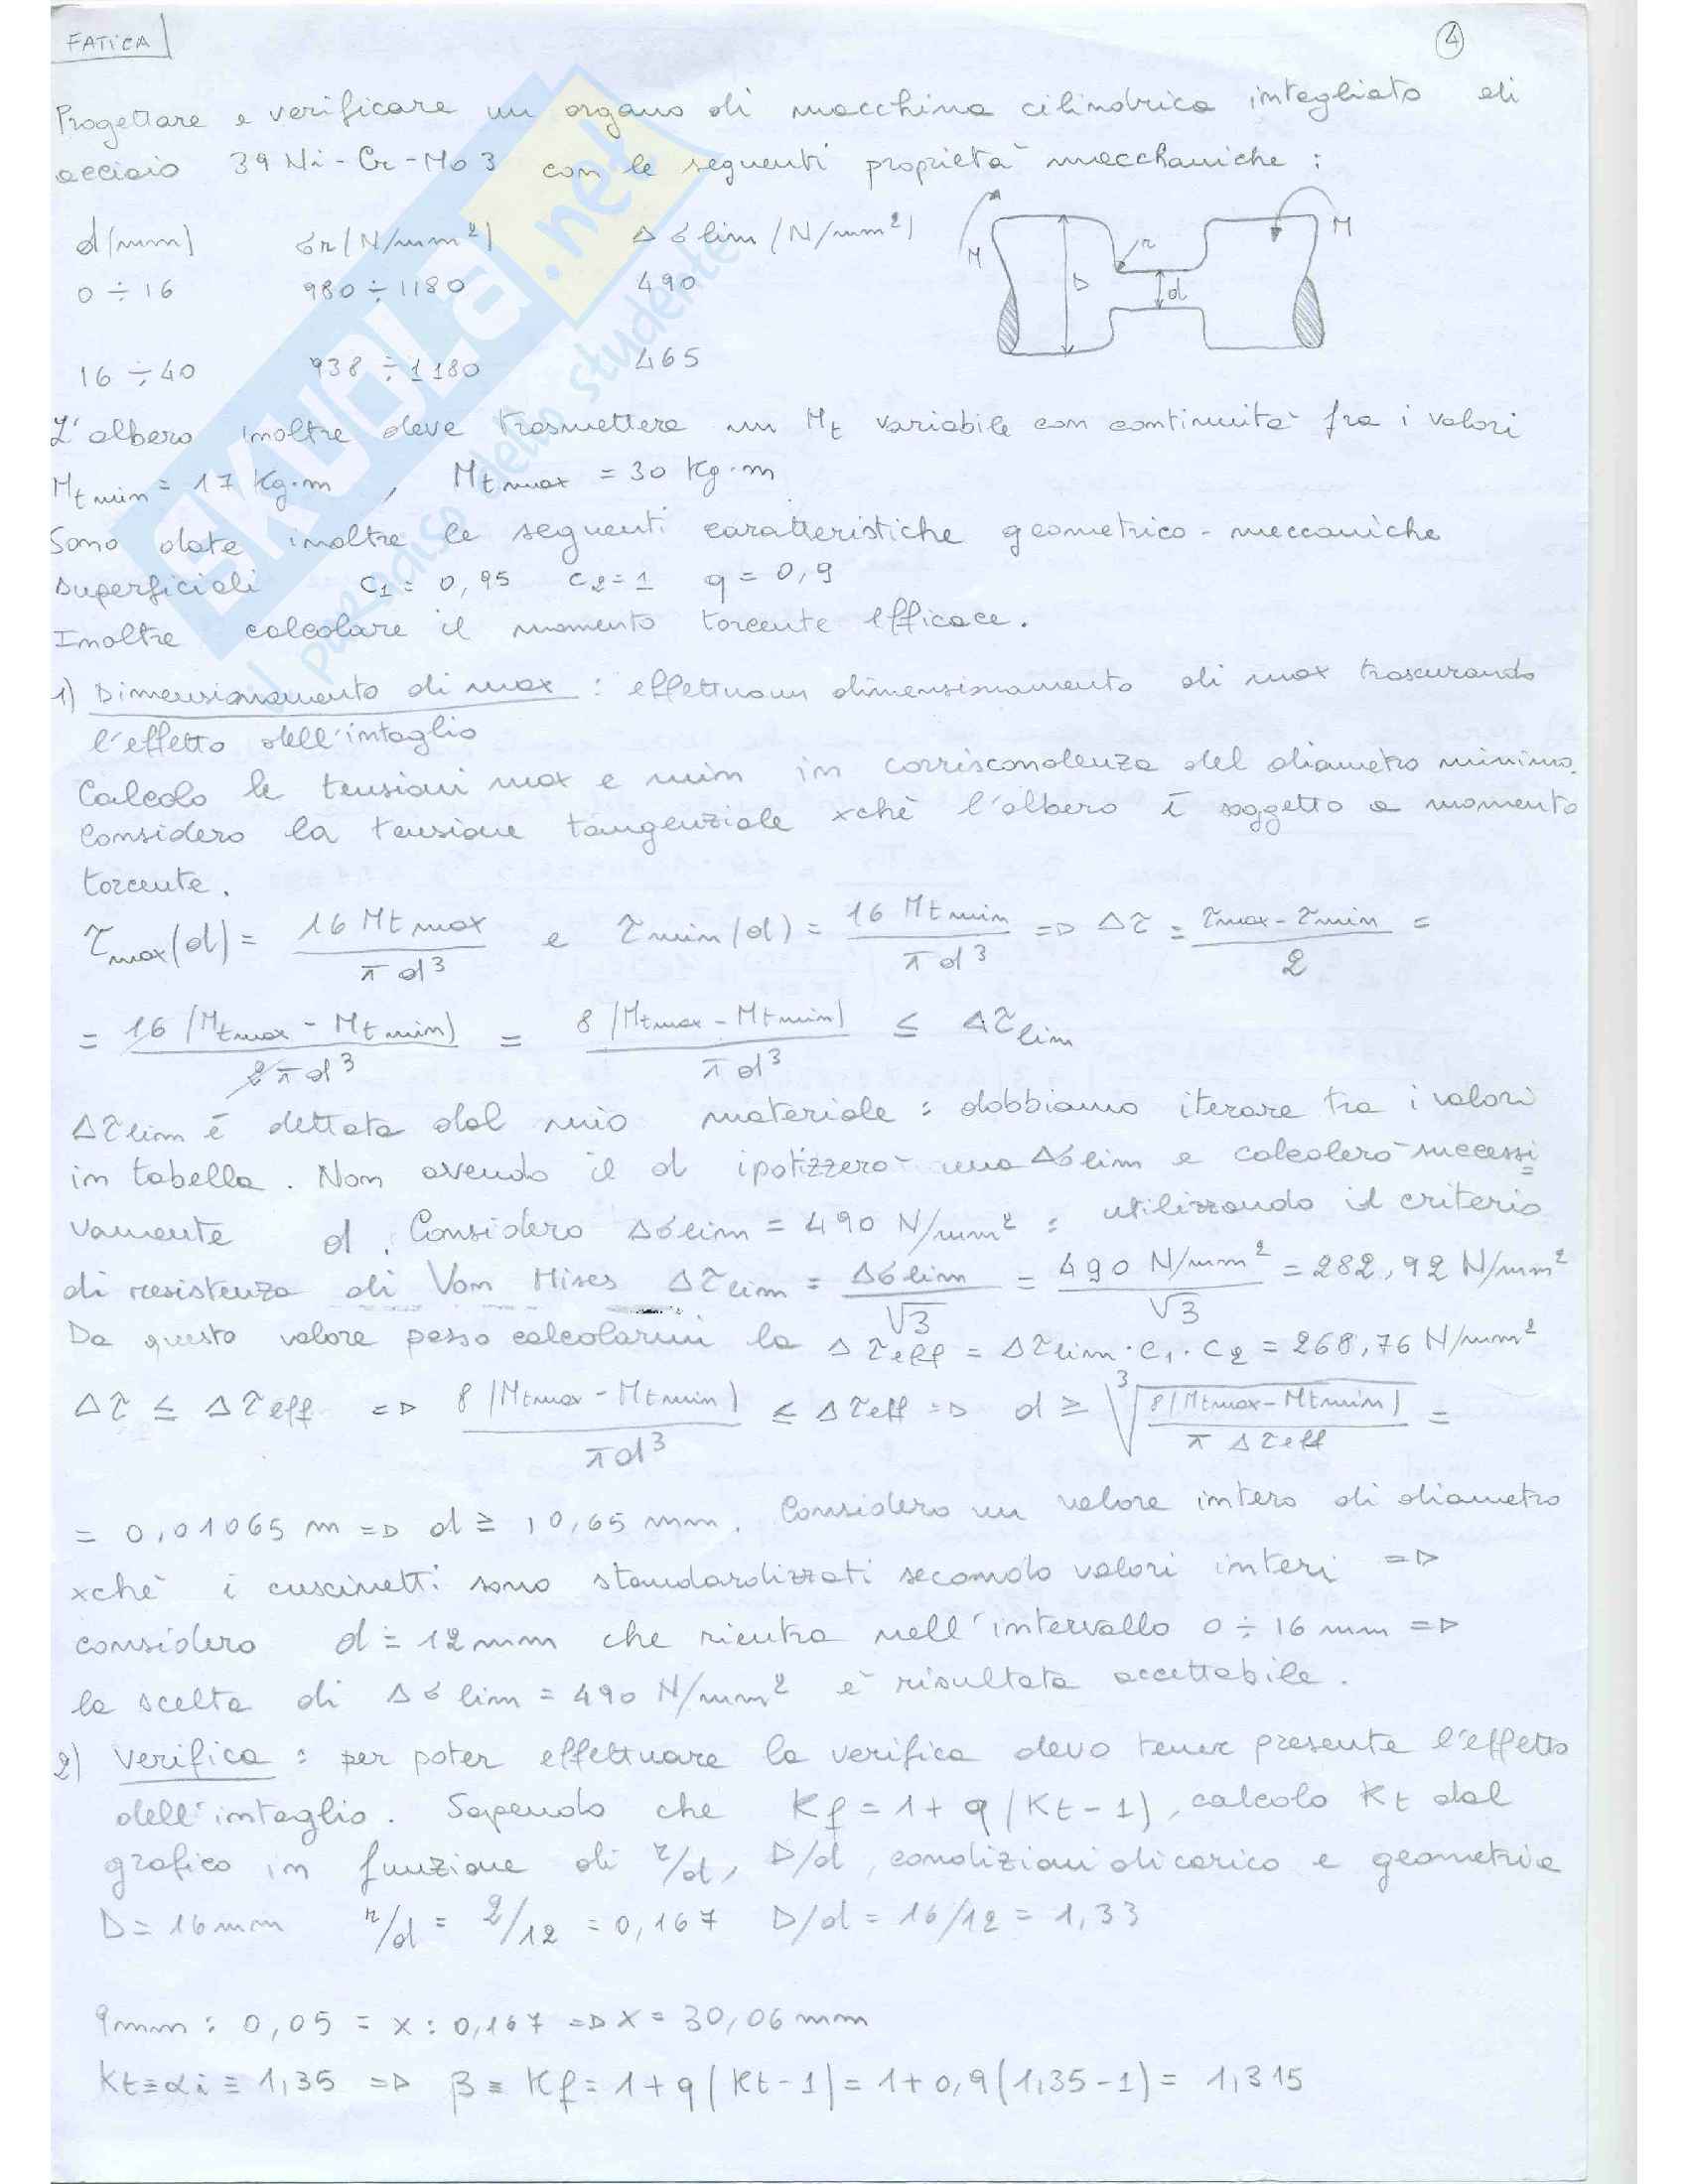 FATICA
4
Progettare e verificare un organo di macchina cilindrico intagliato di
acciaio 39Ni-Cr-Mo3 con le seguenti proprietà meccaniche :
d(mm) σr(N/mm²) Δσlim(N/mm²)
0÷16 980÷1180 490
16÷40 938÷1180 465
M D r d M
L'albero inoltre deve trasmettere un Mt variabile con continuità fra i valori
Mtmin = 17 Kg·m , Mtmax = 30 Kg·m
Sono date inoltre le seguenti caratteristiche geometrico-meccaniche
superficiali c1 = 0,95 c2 = 1 q = 0,9
Inoltre calcolare il momento torcente efficace.
1) Dimensionamento di max : effettuo un dimensionamento di max trascurando
l'effetto dell'intaglio
Calcolo le tensioni max e min in corriscondenza del diametro minimo.
Considero la tensione tangenziale xchè l'albero è soggetto a momento
torcente.
τmax(d) = 16 Mtmax / πd³ e τmin(d) = 16 Mtmin / πd³ => Δτ = τmax - τmin / 2 =
= 16 (Mtmax - Mtmin) / 2πd³ = 8 (Mtmax - Mtmin) / πd³ ≤ Δτlim
Δτlim è dettata dal mio materiale : dobbiamo iterare tra i valori
in tabella. Non avendo il d ipotizzerò una Δσlim e calcolerò successi
vamente d. Considero Δσlim = 490 N/mm² : utilizzando il criterio
di resistenza di Von Mises Δτlim = Δσlim / √3 = 490 N/mm² / √3 = 282,92 N/mm²
Da questo valore posso calcolarmi la Δτeff = Δτlim · c1 · c2 = 268,76 N/mm²
Δτ ≤ Δτeff => 8 (Mtmax - Mtmin) / πd³ ≤ Δτeff => d ≥ ³√ 8(Mtmax - Mtmin) / π Δτeff =
= 0,01065 m => d ≥ 10,65 mm. Considero un valore intero di diametro
xchè i cuscinetti sono standardizzati secondo valori interi =>
considero d = 12 mm che rientra nell'intervallo 0÷16 mm =>
la scelta di Δσlim = 490 N/mm² è risultata accettabile.
2) Verifica : per poter effettuare la verifica devo tener presente l'effetto
dell'intaglio. Sapendo che Kf = 1 + q (Kt - 1), calcolo Kt dal
grafico in funzione di r/d, D/d, condizioni di carico e geometria
D = 16 mm r/d = 2/12 = 0,167 D/d = 16/12 = 1,33
9mm : 0,05 = x : 0,167 => x = 30,06 mm
Kt ≡ αi ≡ 1,35 => β ≡ Kf = 1 + q (Kt - 1) = 1 + 0,9 (1,35 - 1) = 1,315
SKUOLA.net
il paradiso dello studente